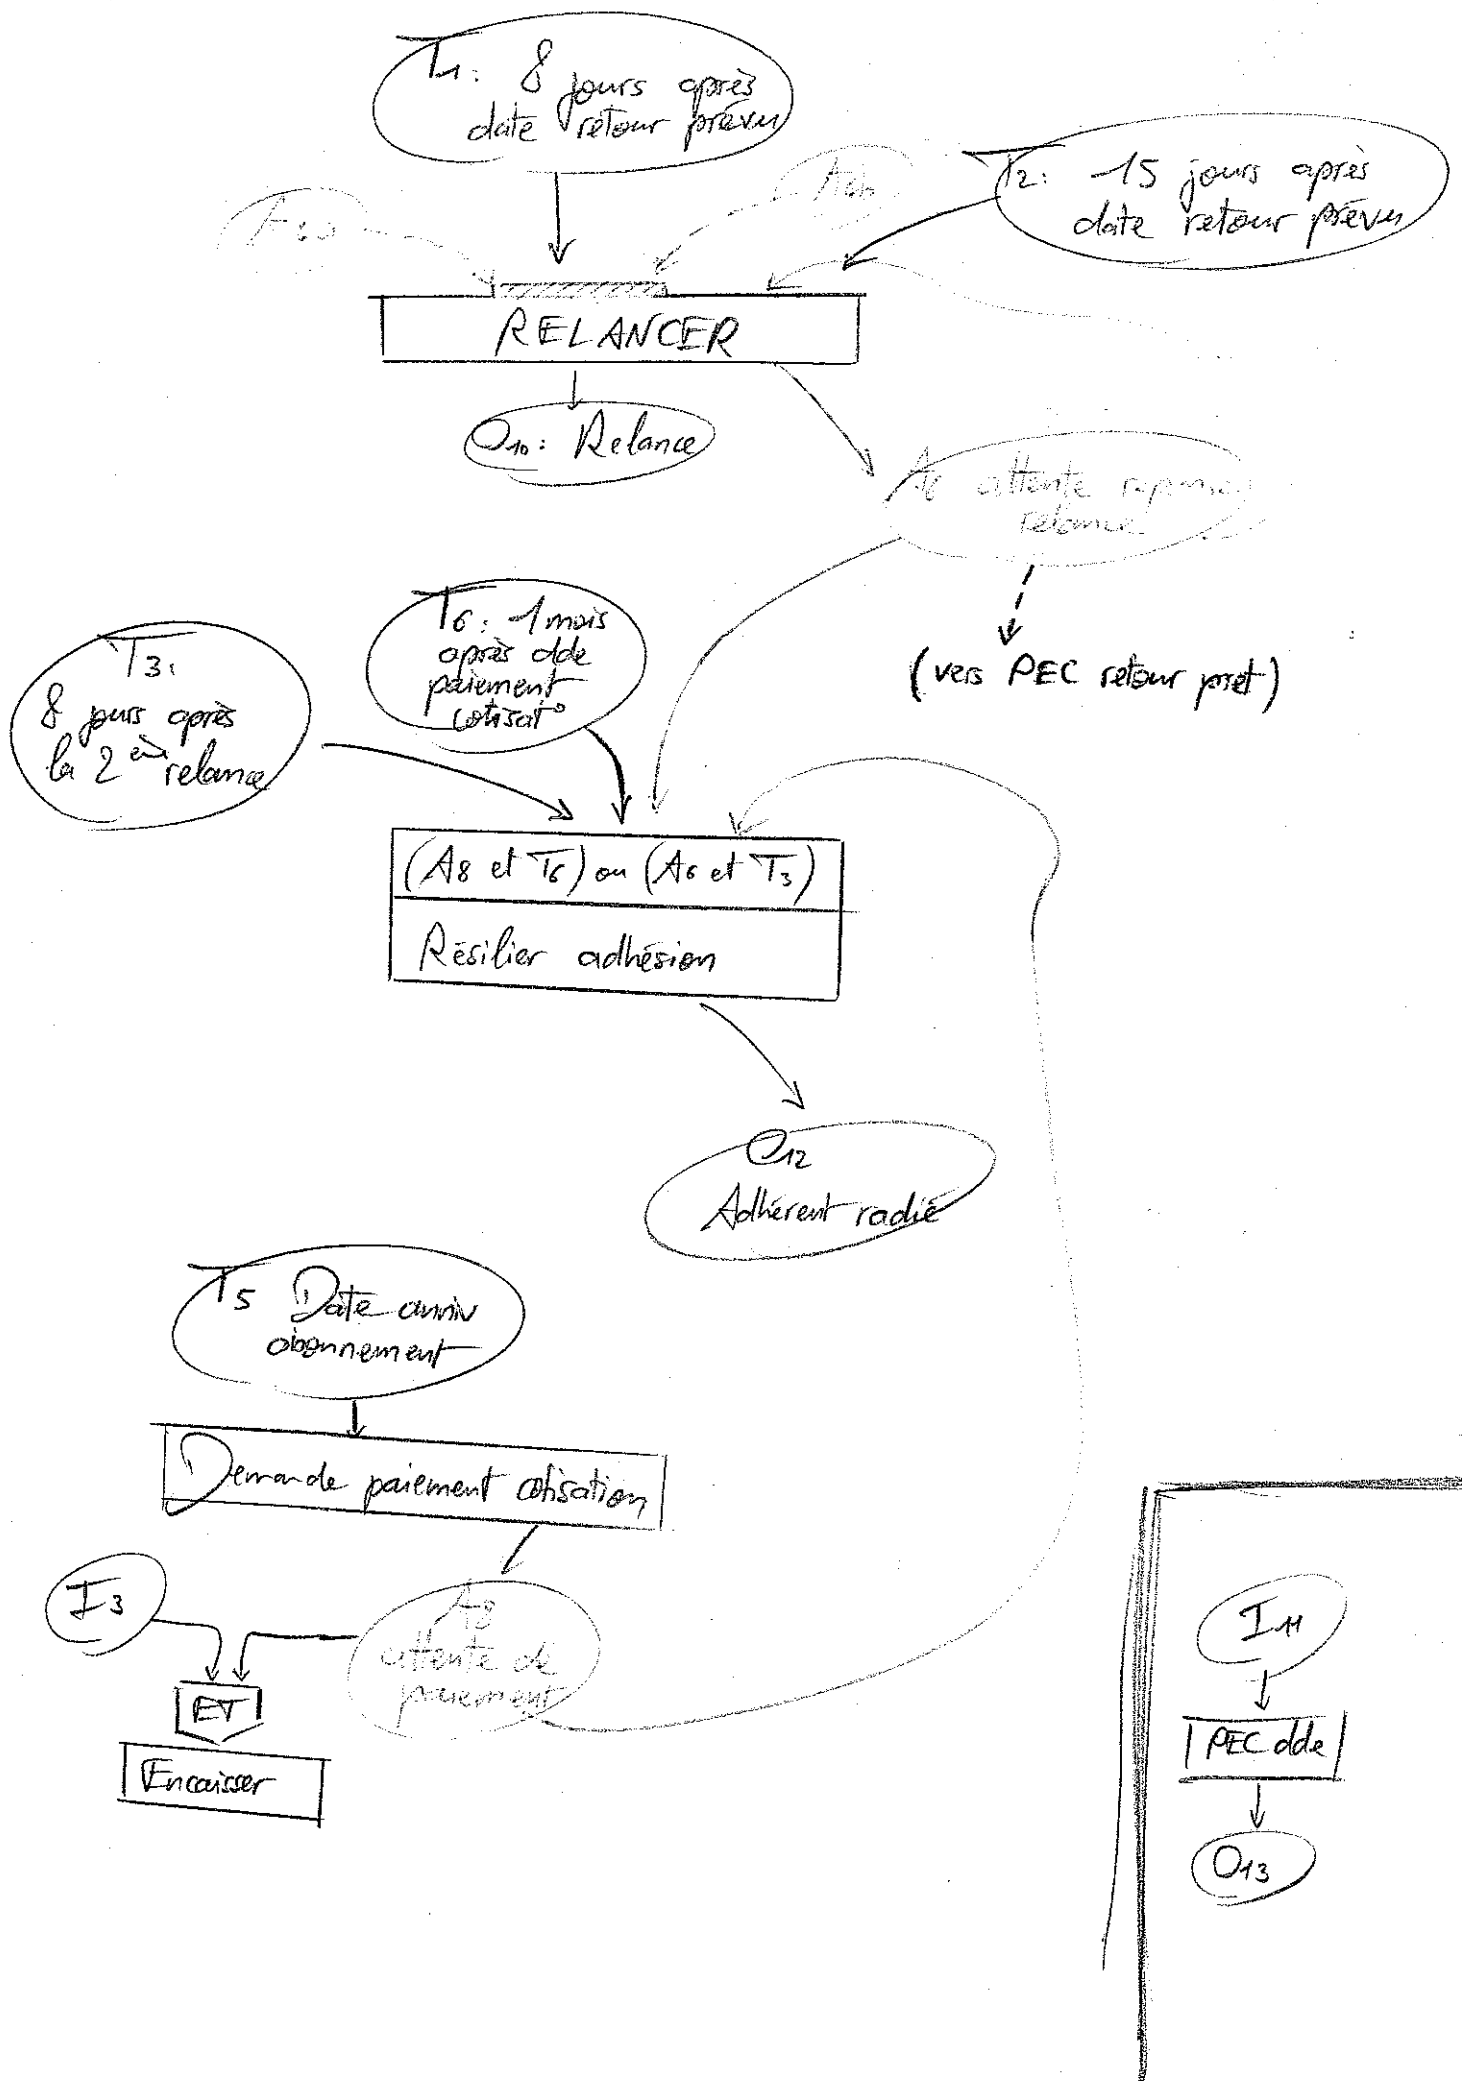 T1: 8 jours après
date retour prévu
T2: 15 jours après
date retour prévu
RELANCER
O10: Relance
A6 attente
relance
(vers PEC retour pret)
T6: 1 mois
après dde
paiement
cotisat°
T3:
8 jours après
la 2ème relance
(A8 et T6) ou (A6 et T3)
Résilier adhésion
O12
Adhérent radié
T5 Date anniv
abonnement
Demande paiement cotisation
I3
A8
attente de
paiement
ET
Encaisser
I11
PEC dde
O13